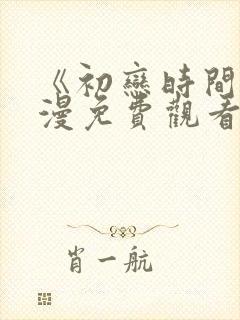 《初戀時間
漫免費觀看
肖一航